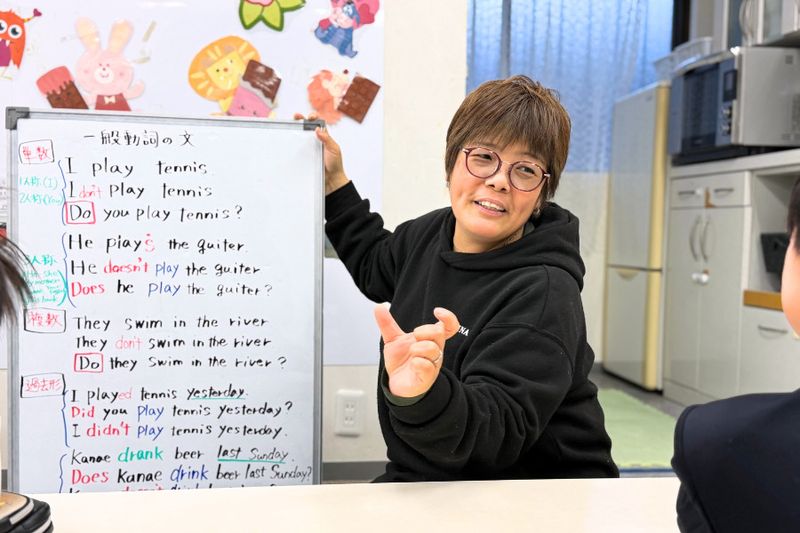 一般動詞の文
単数
1人称(I)
2人称(You)
I play tennis.
I don't play tennis
Do you play tennis?
3人称
He plays the guiter.
He doesn't play the guiter
Does he play the guiter?
複数
They swim in the river
They don't swim in the river
Do they swim in the river?
過去形
I played tennis yesterday.
Did you play tennis yesterday?
I didn't play tennis yesterday.
Kanae drank beer last Sunday.
Does Kanae drink beer last Sunday?